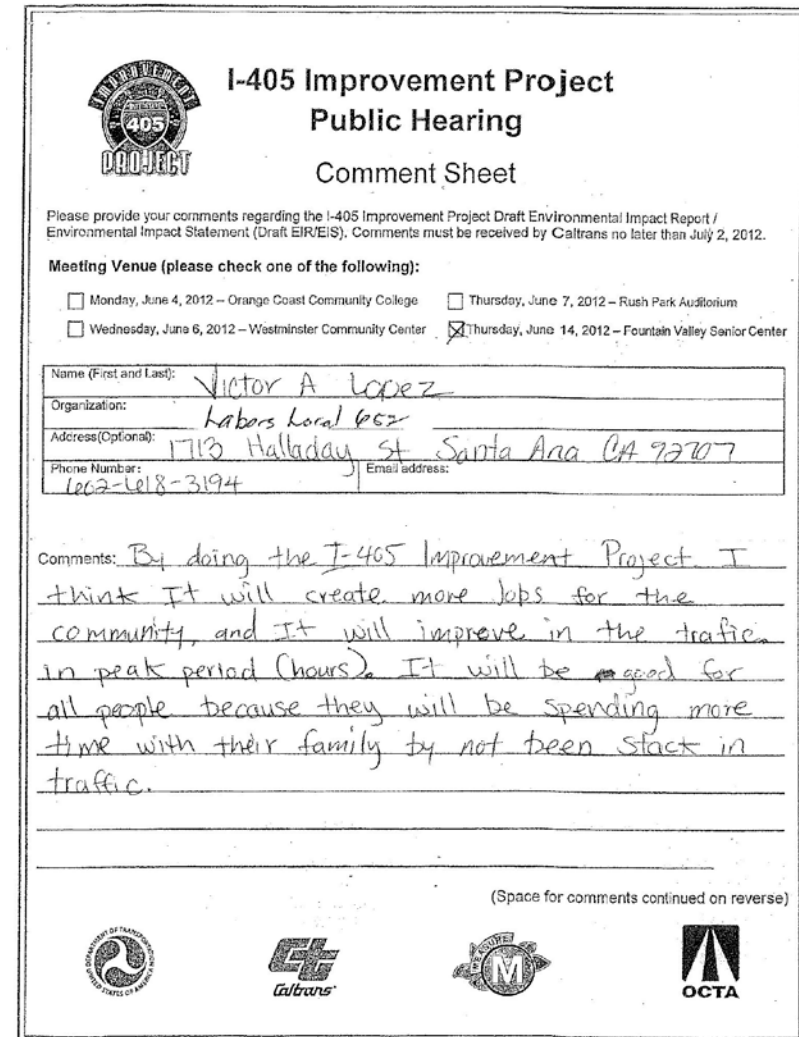 IMPROVEMENT
405
PROJECT
I-405 Improvement Project
Public Hearing
Comment Sheet
Please provide your comments regarding the I-405 Improvement Project Draft Environmental Impact Report /
Environmental Impact Statement (Draft EIR/EIS). Comments must be received by Caltrans no later than July 2, 2012.
Meeting Venue (please check one of the following):
Monday, June 4, 2012 – Orange Coast Community College
Thursday, June 7, 2012 – Rush Park Auditorium
Wednesday, June 6, 2012 – Westminster Community Center
Thursday, June 14, 2012 – Fountain Valley Senior Center
Name (First and Last): Victor A Lopez
Organization: Labors Local 652
Address(Optional): 1713 Halladay St Santa Ana CA 92707
Phone Number: 
Email address:
Comments: By doing the I-405 Improvement Project I
think It will create more Jobs for the
community, and It will improve in the trafic
in peak period (hours). It will be good for
all people because they will be spending more
time with their family by not been stack in
traffic.
(Space for comments continued on reverse)
DEPARTMENT OF TRANSPORTATION
UNITED STATES OF AMERICA
Caltrans
MEASURE
M
OCTA